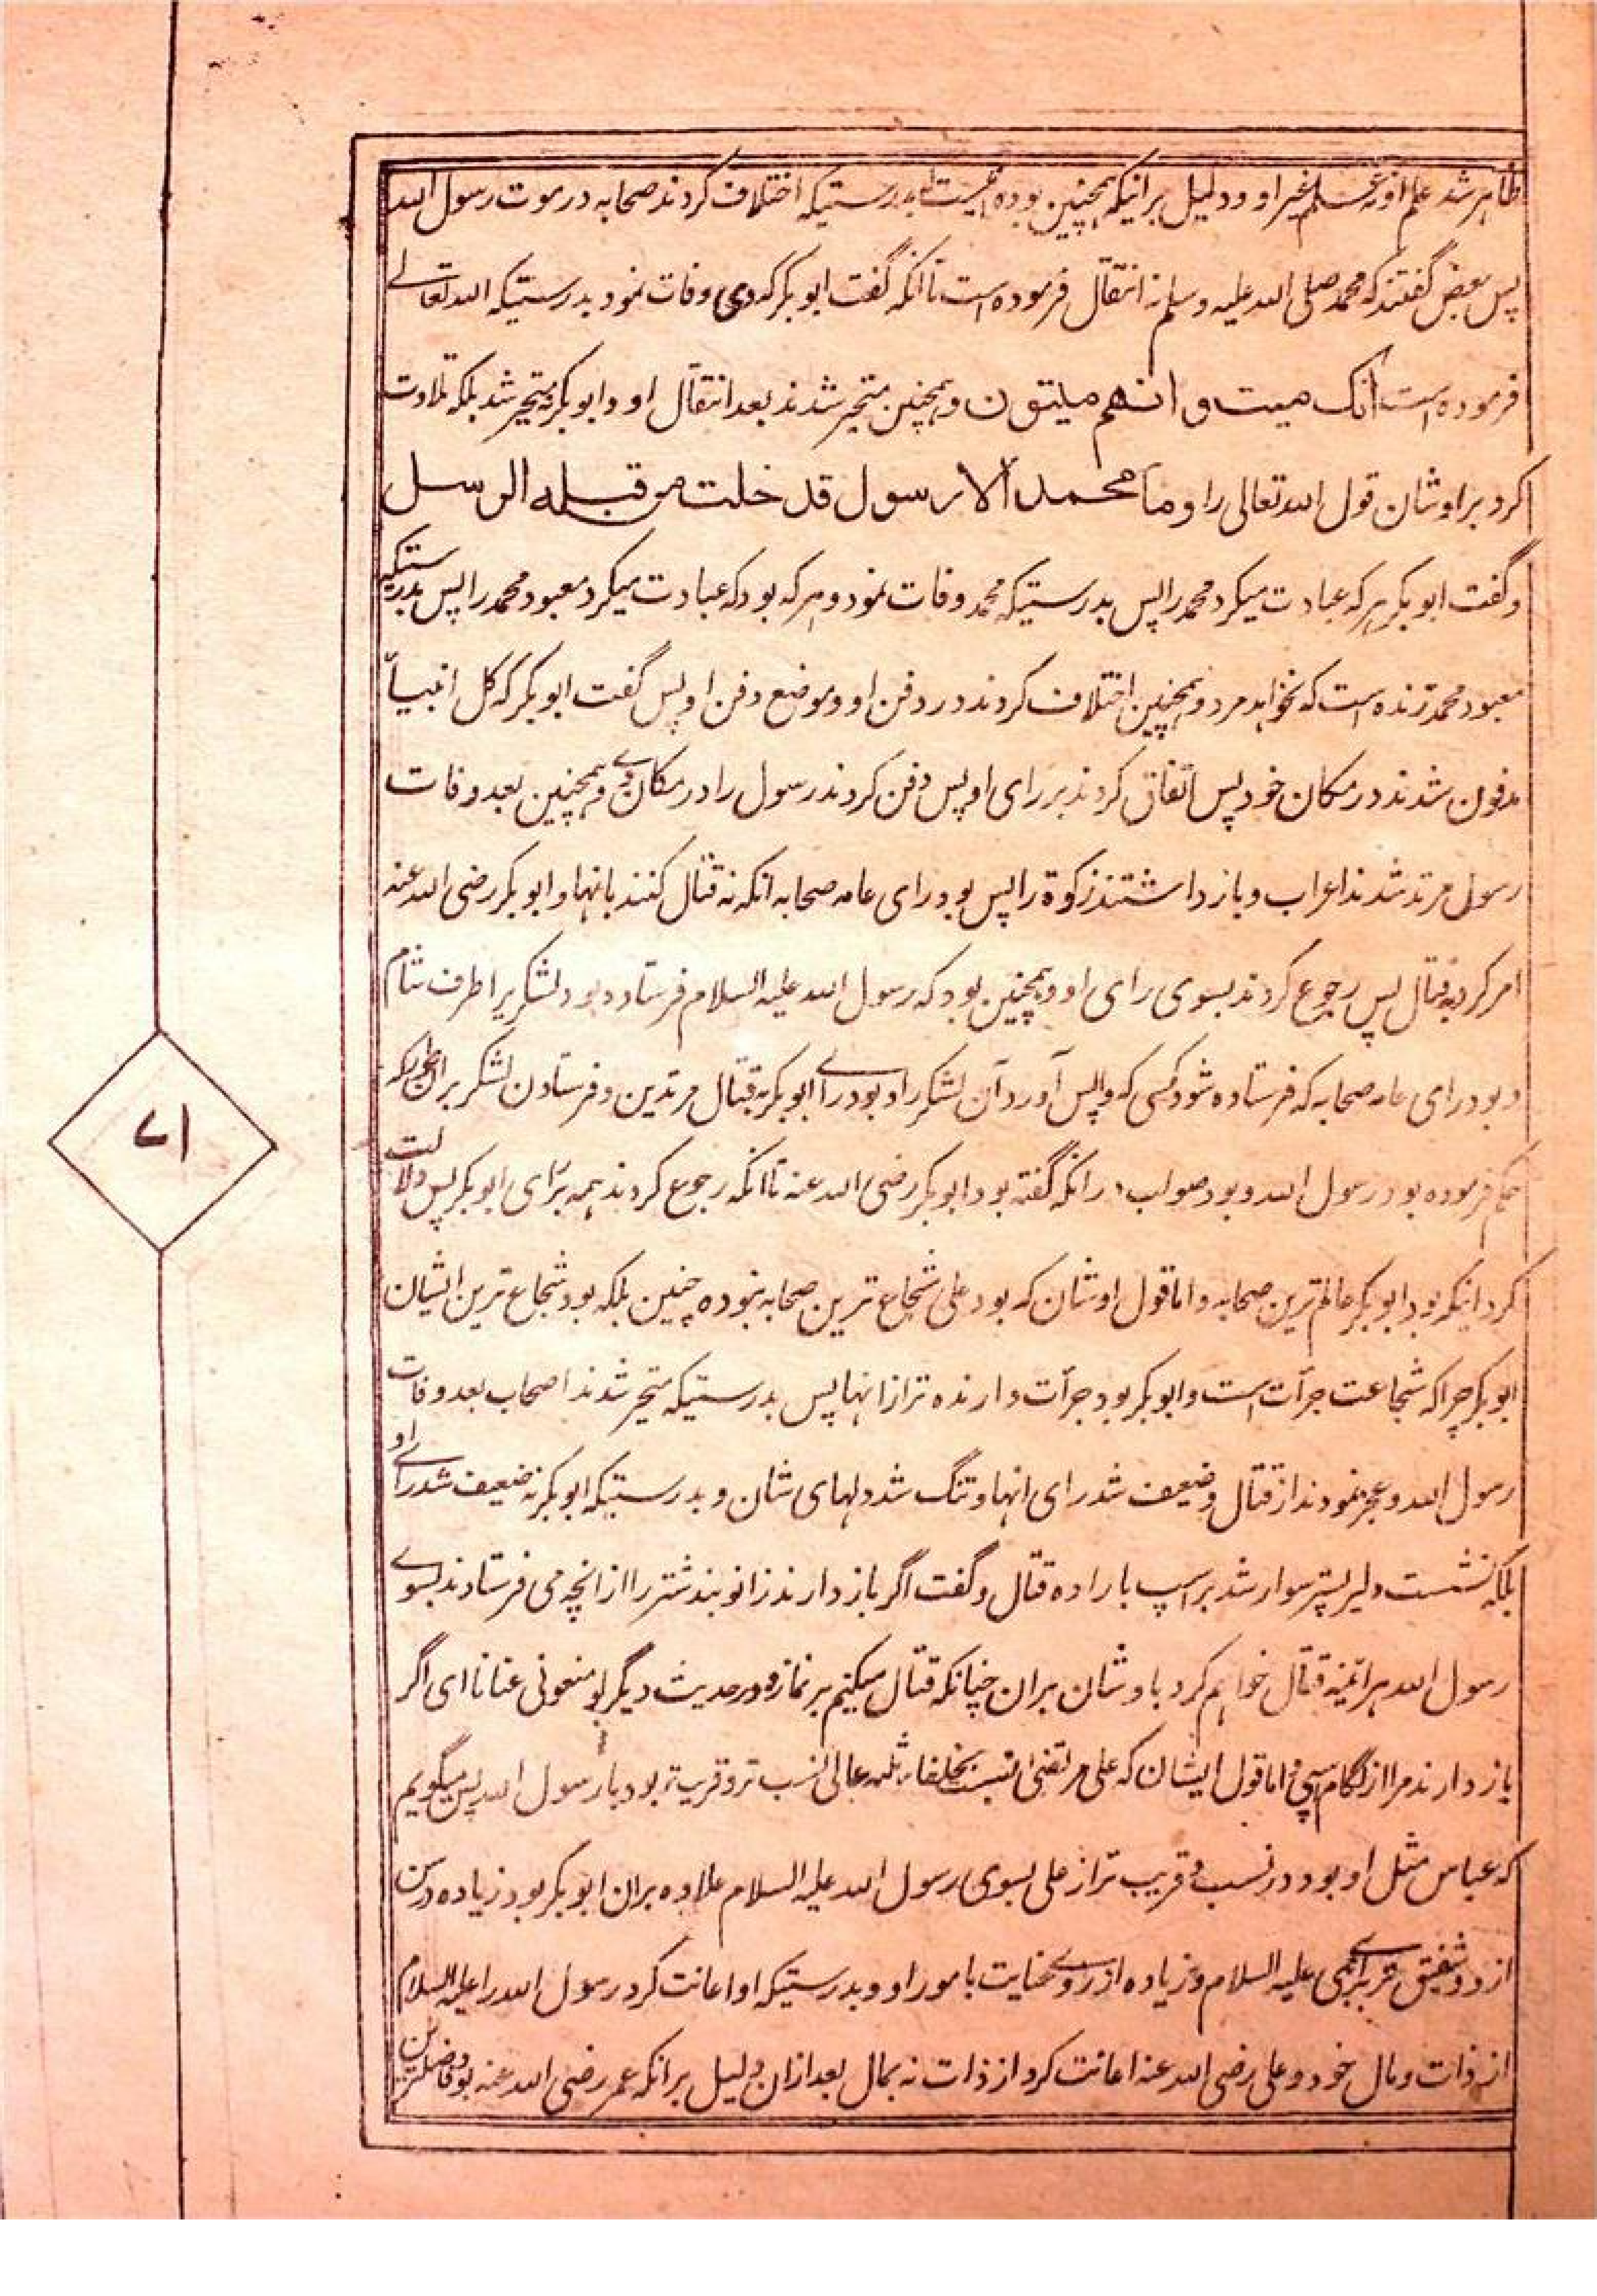 ظاهر شد علم او نه علم غیر او و دلیل برانیکه همچنین بوده است بدرستیکه اختلاف کردند صحابه در موت رسول الله
پس بعض گفتند که محمد صلی الله علیه وسلم نه انتقال فرموده است تا آنکه گفت ابوبکر که وی وفات نمود بدرستیکه الله تعالے
فرموده است انک میت و انهم میتون و همچنین متحیر شدند بعد انتقال او و ابوبکر نه متحیر شد بلکه تلاوت
کرد بر اوشان قول الله تعالی را و ما محمد الا رسول قد خلت من قبله الرسل
و گفت ابوبکر هر که عبادت میکرد محمد را پس بدرستیکه محمد وفات نمود و هر که بود که عبادت میکرد معبود محمد را پس بدرستیکه
معبود محمد زنده است که نخواهد مرد و همچنین اختلاف کردند در دفن او و موضع دفن او پس گفت ابوبکر که کل انبیاء
مدفون شدند در مکان خود پس اتفاق کردند بر رای او پس دفن کردند رسول را در مکان وے و همچنین بعد وفات
رسول مرتد شدند اعراب و باز داشتند زکوة را پس بود رای عامه صحابه آنکه نه قتال کنند بانها و ابوبکر رضی الله عنه
امر کرد به قتال پس رجوع کردند بسوی رای او و همچنین بود که رسول الله علیه السلام فرستاده بود لشکریرا طرف شام
و بود رای عامه صحابه که فرستاده شود کسی که واپس آورد آن لشکر را و بود راے ابوبکر به قتال مرتدین و فرستادن لشکر بران طوریکه
حکم فرموده بود رسول الله و بود صواب در انکه گفته بود ابوبکر رضی الله عنه تا آنکه رجوع کردند همه برای ابوبکر پس دلالت
کرد اینکه بود ابوبکر عالم ترین صحابه و اما قول اوشان که بود علی شجاع ترین صحابه نبوده چنین بلکه بود شجاع ترین ایشان
ابوبکر چراکه شجاعت جرأت است و ابوبکر بود جرأت دارنده تر از انها پس بدرستیکه متحیر شدند اصحاب بعد وفات
رسول الله و عجز نمودند از قتال و ضعیف شد رای انها و تنگ شد دلهای شان و بدرستیکه ابوبکر نه ضعیف شد راے او
بلکه نشست دلیر پستر سوار شد بر اسپ باراده قتال و گفت اگر باز دارند زانو بند شتر را از انچه می فرستادند بسوے
رسول الله هر آئینه قتال خواهم کرد با وشان بران چنانکه قتال میکنیم بر نماز و در حدیث دیگر لو منعونی عنانا ای اگر
باز دارند مرا از لگام اسپی اما قول ایشان که علی مرتضی نسبت بخلفاء ثلثه عالی نسب تر و قریب تر بود با رسول الله پس میگویم
که عباس مثل او بود در نسب و قریب تر از علی بسوی رسول الله علیه السلام علاوه بران ابوبکر بود زیاده در سن
از و و شفیق تر بر نبی علیه السلام و زیاده از روے عنایت بامور او و بدرستیکه او اعانت کرد رسول الله را علیه السلام
از ذات و مال خود و علی رضی الله عنه اعانت کرد از ذات نه بمال بعد ازان دلیل برانکه عمر رضی الله عنه بود فاضلترین
۷۱